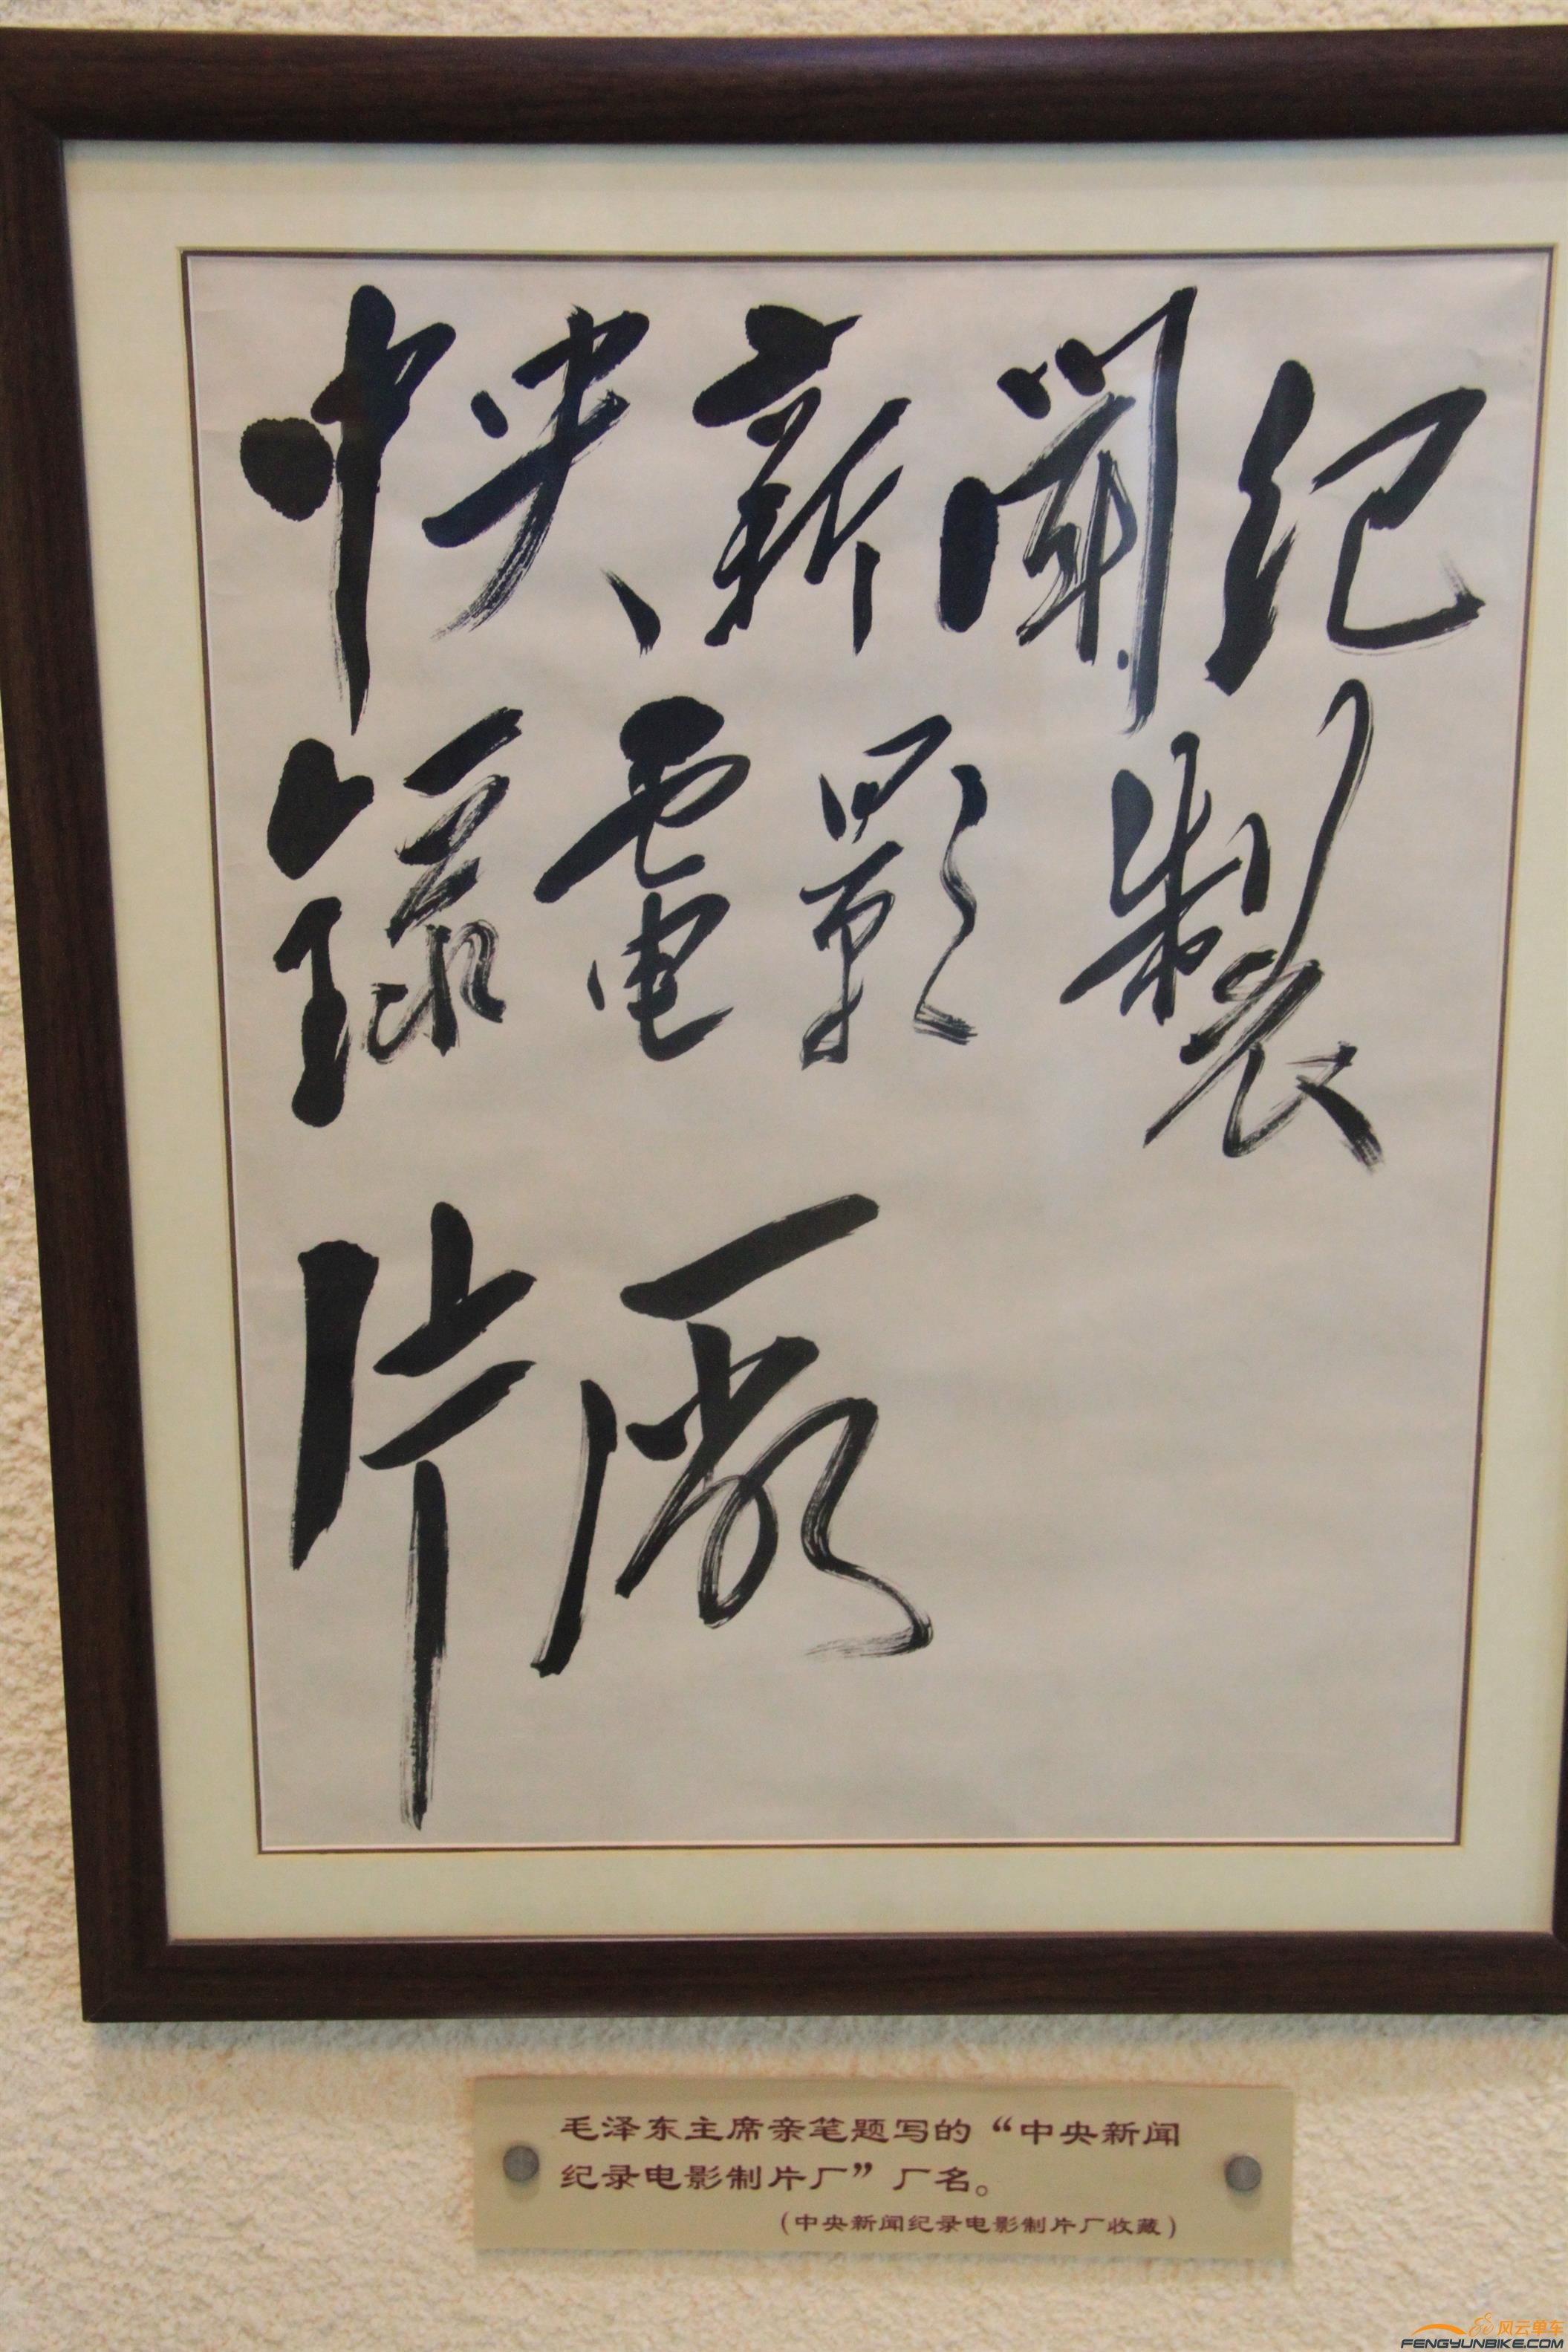 中央新闻纪
錄電影製
片廠
毛泽东主席亲笔题写的“中央新闻
纪录电影制片厂”厂名。
(中央新闻纪录电影制片厂收藏)
风云单车
FENGYUNBIKE.COM